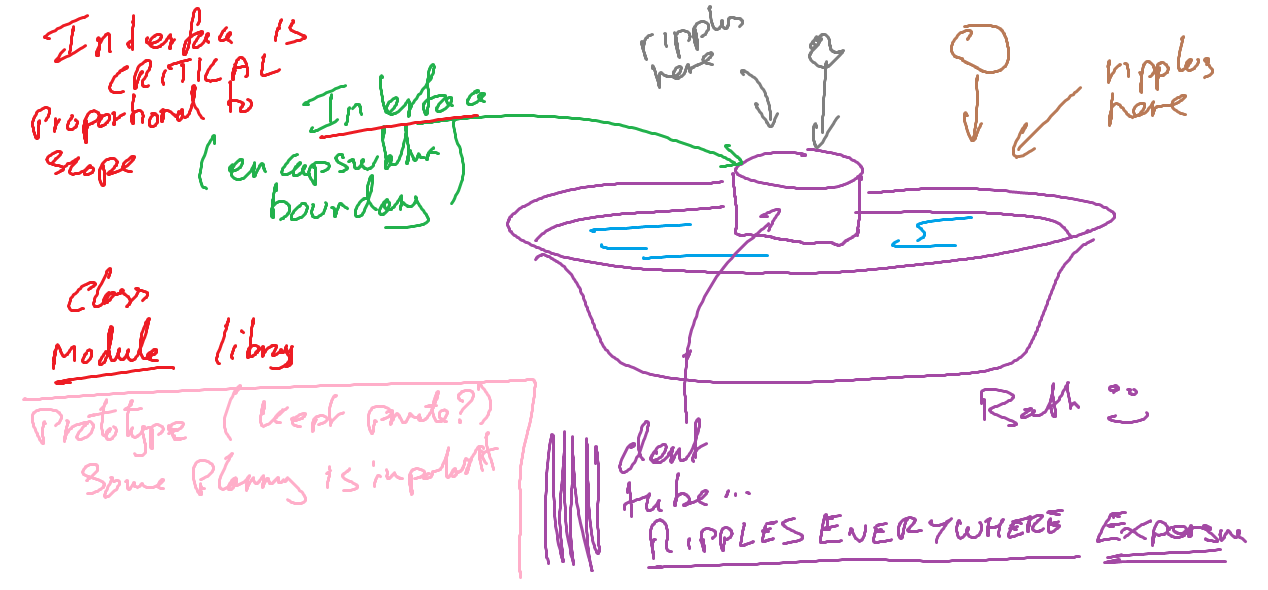 Interface is
CRITICAL
Proportional to
scope
Interface
(encapsulation
boundary)
ripples
here
ripples
here
Class
Module library
Prototype (kept private?)
Some Planning is important
Bath
dent
tube...
RIPPLES EVERYWHERE Exposure